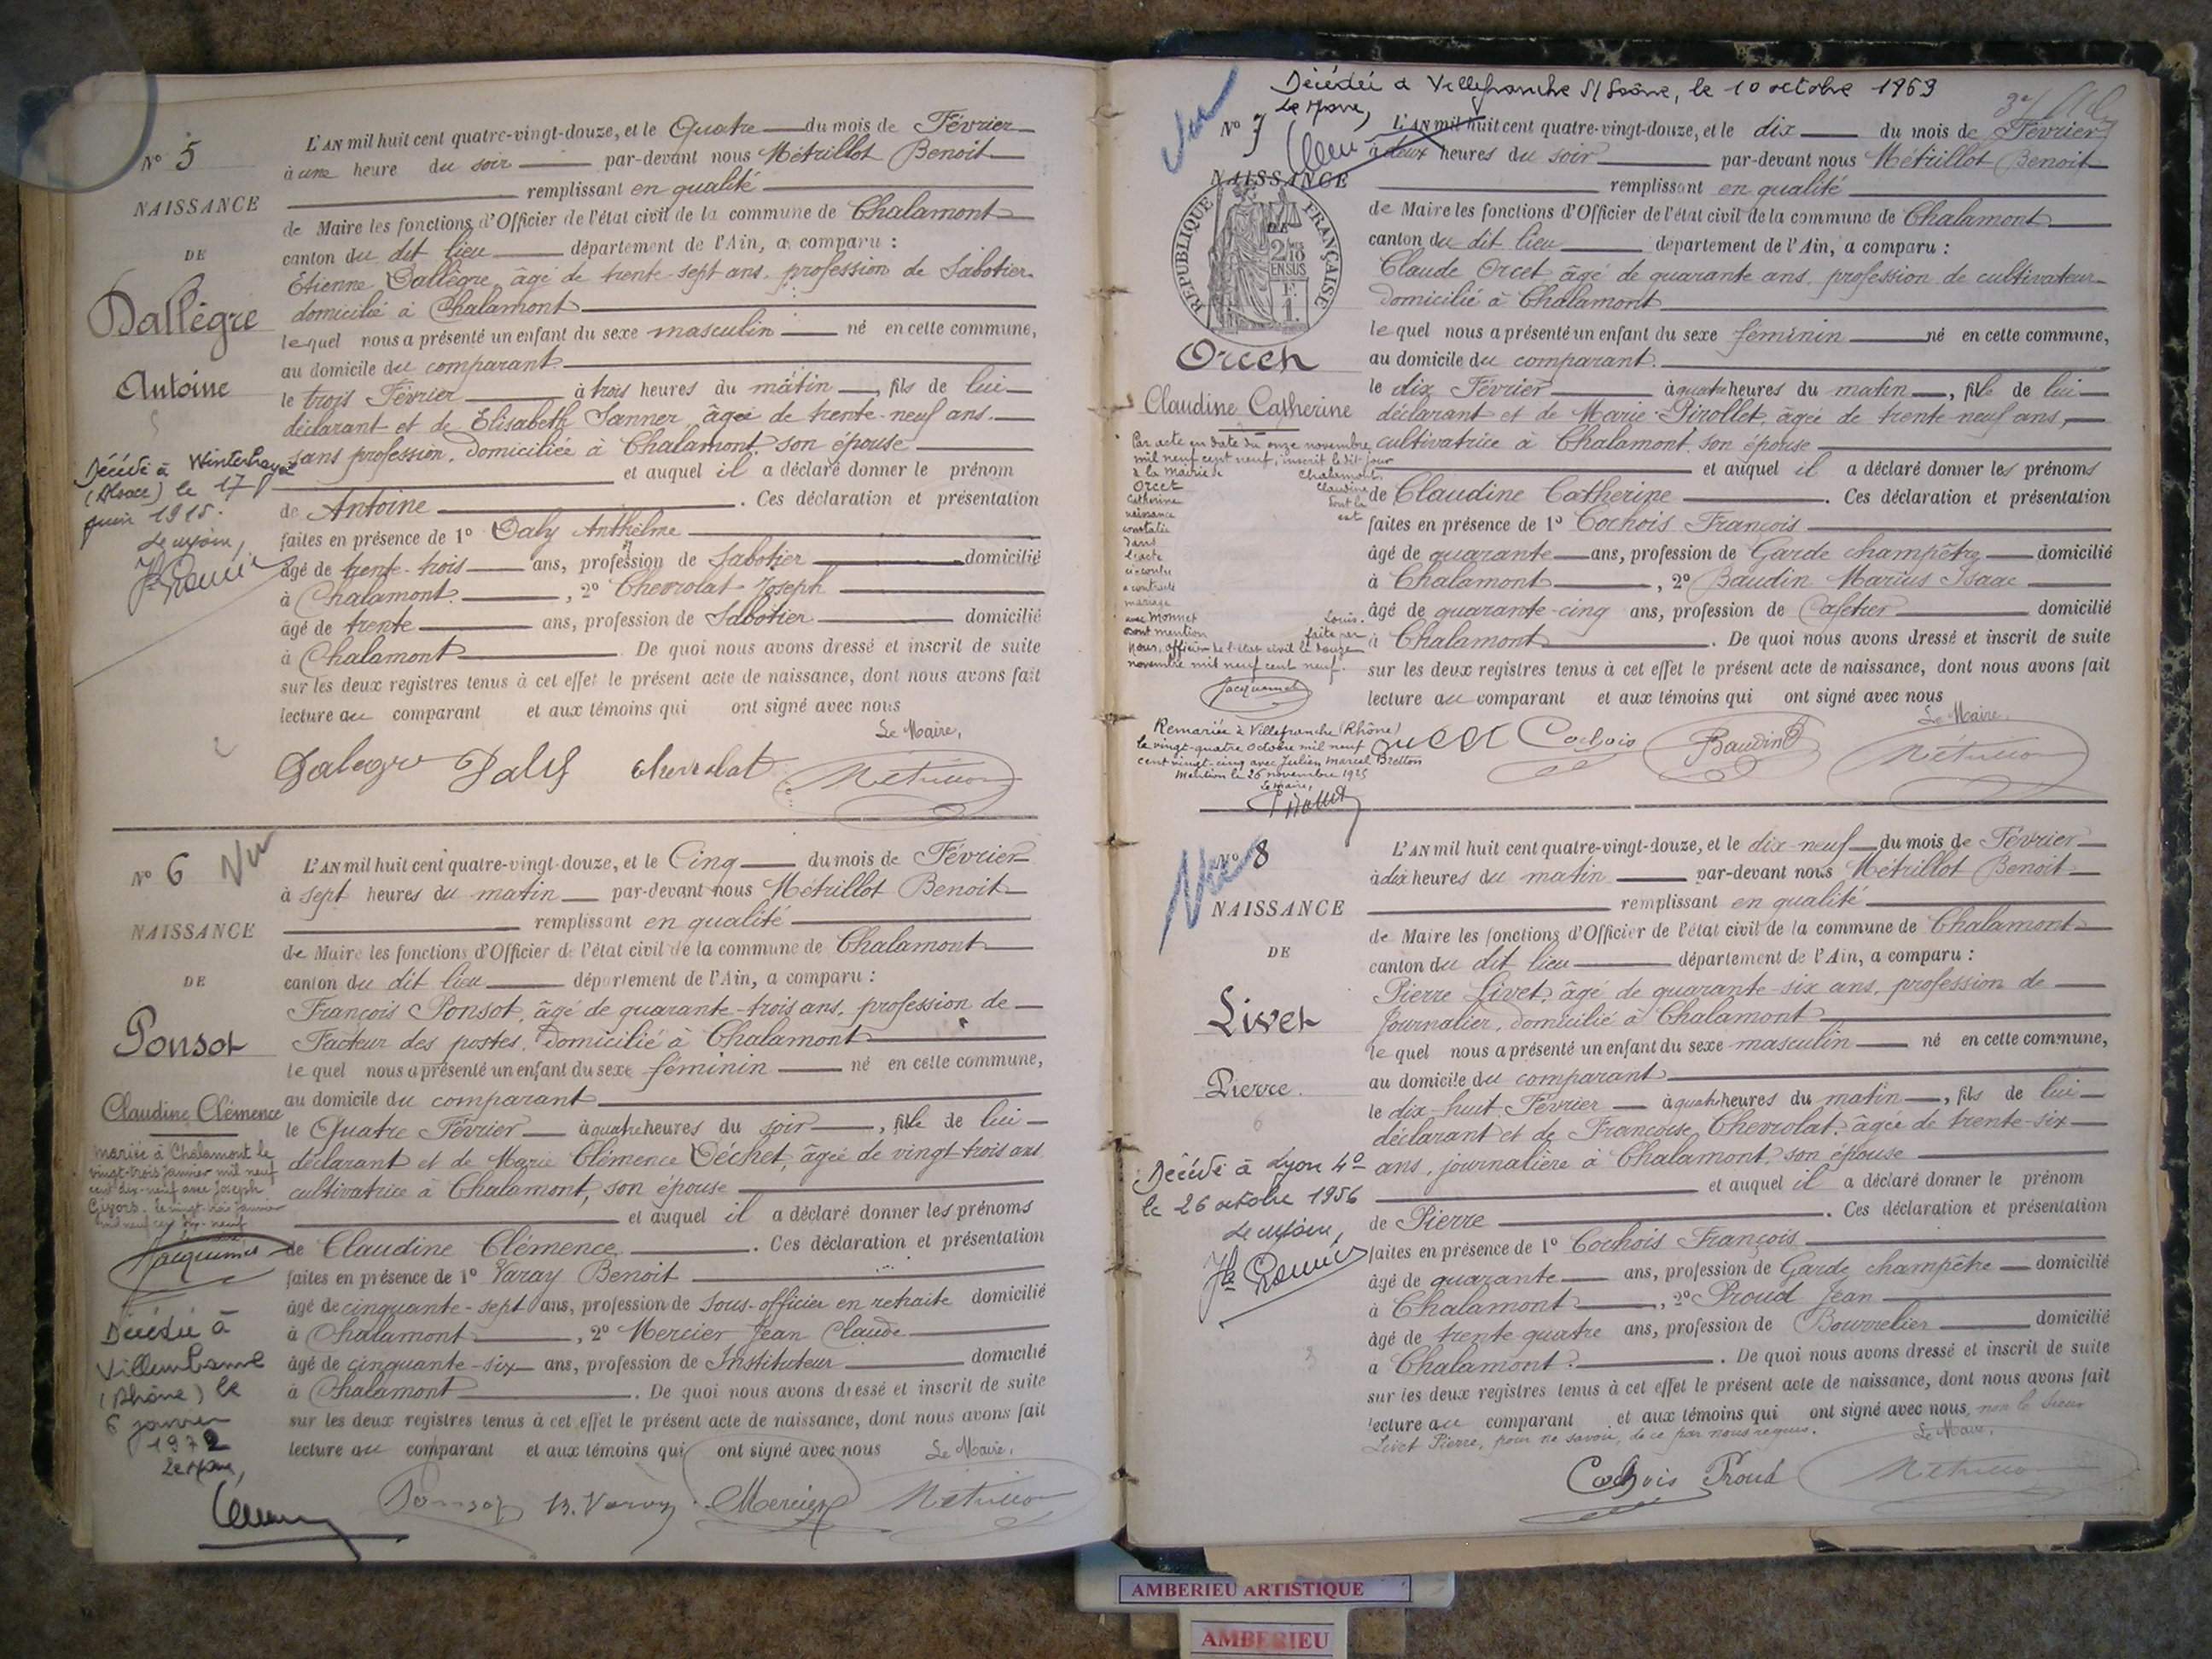 N° 5
NAISSANCE
DE
Dallègre
Antoine
Décédé à
(Alsace) le 17
juin 1915.
Le Maire,
L'AN mil huit cent quatre-vingt-douze, et le Quatre du mois de Février
à une heure du soir par-devant nous Métrillot Benoit
remplissant en qualité
de Maire les fonctions d'Officier de l'état civil de la commune de Chalamont
canton du dit lieu département de l'Ain, a comparu :
Etienne Dallègre, âgé de trente-sept ans, profession de Sabotier
domicilié à Chalamont
lequel nous a présenté un enfant du sexe masculin né en cette commune,
au domicile du comparant
le trois Février à trois heures du matin, fils de lui
déclarant et de Elisabeth Sanner âgée de trente-neuf ans.
sans profession, domiciliée à Chalamont, son épouse
et auquel il a déclaré donner le prénom
de Antoine. Ces déclaration et présentation
faites en présence de 1° Daly Anthelme
âgé de trente-trois ans, profession de Sabotier domicilié
à Chalamont, 2° Chevrolat Joseph
âgé de trente ans, profession de Sabotier domicilié
à Chalamont De quoi nous avons dressé et inscrit de suite
sur les deux registres tenus à cet effet le présent acte de naissance, dont nous avons fait
lecture au comparant et aux témoins qui ont signé avec nous
Le Maire,
Dalegre Daly Chevrolat Métrillot
N° 6 Vu
NAISSANCE
DE
Ponsot
Claudine Clémence
mariée à Chalamont le
vingt-trois janvier mil neuf
cent dix-neuf avec Joseph
Givors. le vingt-trois janvier
mil neuf cent dix-neuf
Jacquemin
Décédée à
Villeurbanne
(Rhône) le
6 janvier
1972
Le Maire,
L'AN mil huit cent quatre-vingt-douze, et le Cinq du mois de Février
à sept heures du matin par-devant nous Métrillot Benoit
remplissant en qualité
de Maire les fonctions d'Officier de l'état civil de la commune de Chalamont
canton du dit lieu département de l'Ain, a comparu :
François Ponsot, âgé de quarante-trois ans, profession de
Facteur des postes, domicilié à Chalamont
lequel nous a présenté un enfant du sexe féminin né en cette commune,
au domicile du comparant
le Quatre Février à quatre heures du soir, fille de lui
déclarant et de Marie Clémence Déchet, âgée de vingt-trois ans
cultivatrice à Chalamont, son épouse
et auquel il a déclaré donner les prénoms
de Claudine Clémence. Ces déclaration et présentation
faites en présence de 1° Varay Benoit
âgé de cinquante-sept ans, profession de Sous-officier en retraite domicilié
à Chalamont, 2° Mercier Jean Claude
âgé de cinquante-six ans, profession de Instituteur domicilié
à Chalamont. De quoi nous avons dressé et inscrit de suite
sur les deux registres tenus à cet effet le présent acte de naissance, dont nous avons fait
lecture au comparant et aux témoins qui ont signé avec nous Le Maire,
Ponsot B. Varay Mercier Métrillot
Décédée à Villefranche S/Saône, le 10 octobre 1969
Le Maire,
Vu
N° 7
NAISSANCE
DE
RÉPUBLIQUE FRANÇAISE
2/10
EN SUS
F.
1.
Orcet
Claudine Catherine
Par acte en date du onze novembre
mil neuf cent neuf, inscrit le dit jour
à la mairie de Chalamont,
Orcet Claudine
Catherine dont la
naissance est
constatée
dans
l'acte
ci-contre
a contracté
mariage
avec Monnet Louis.
dont mention faite par
nous, officier de l'état civil le douze
novembre mil neuf cent neuf.
Jacquemin
Remariée à Villefranche (Rhône)
le vingt-quatre Octobre mil neuf
cent vingt-cinq avec Julien Marcel Bretton
Mention le 26 novembre 1925
Le Maire,
L'AN mil huit cent quatre-vingt-douze, et le dix du mois de Février
à deux heures du soir par-devant nous Métrillot Benoit
remplissant en qualité
de Maire les fonctions d'Officier de l'état civil de la commune de Chalamont
canton du dit lieu département de l'Ain, a comparu :
Claude Orcet âgé de quarante ans, profession de cultivateur
domicilié à Chalamont
lequel nous a présenté un enfant du sexe féminin né en cette commune,
au domicile du comparant.
le dix Février à quatre heures du matin, fille de lui
déclarant et de Marie Pirollet, âgée de trente neuf ans,
cultivatrice à Chalamont, son épouse
et auquel il a déclaré donner les prénoms
de Claudine Catherine. Ces déclaration et présentation
faites en présence de 1° Cochois François
âgé de quarante ans, profession de Garde champêtre domicilié
à Chalamont, 2° Baudin Marius Isaac
âgé de quarante-cinq ans, profession de Cafetier domicilié
à Chalamont. De quoi nous avons dressé et inscrit de suite
sur les deux registres tenus à cet effet le présent acte de naissance, dont nous avons fait
lecture au comparant et aux témoins qui ont signé avec nous
Le Maire,
Orcet Cochois Baudin Métrillot
N° 8
NAISSANCE
DE
Livet
Pierre.
Décédé à Lyon 4°
le 26 octobre 1956
Le Maire,
L'AN mil huit cent quatre-vingt-douze, et le dix-neuf du mois de Février
à dix heures du matin par-devant nous Métrillot Benoit
remplissant en qualité
de Maire les fonctions d'Officier de l'état civil de la commune de Chalamont
canton du dit lieu département de l'Ain, a comparu :
Pierre Livet, âgé de quarante-six ans, profession de
Journalier, domicilié à Chalamont
lequel nous a présenté un enfant du sexe masculin né en cette commune,
au domicile du comparant
le dix-huit Février à quatre heures du matin, fils de lui
déclarant et de Françoise Chevrolat, âgée de trente-six
ans, journalière à Chalamont, son épouse
et auquel il a déclaré donner le prénom
de Pierre. Ces déclaration et présentation
faites en présence de 1° Cochois François
âgé de quarante ans, profession de Garde champêtre domicilié
à Chalamont, 2° Proud Jean
âgé de trente quatre ans, profession de Bourrelier domicilié
à Chalamont. De quoi nous avons dressé et inscrit de suite
sur les deux registres tenus à cet effet le présent acte de naissance, dont nous avons fait
lecture au comparant et aux témoins qui ont signé avec nous, non le sieur
Livet Pierre, pour ne savoir, de ce par nous requis.
Le Maire,
Cochois Proud Métrillot
AMBERIEU ARTISTIQUE
AMBERIEU